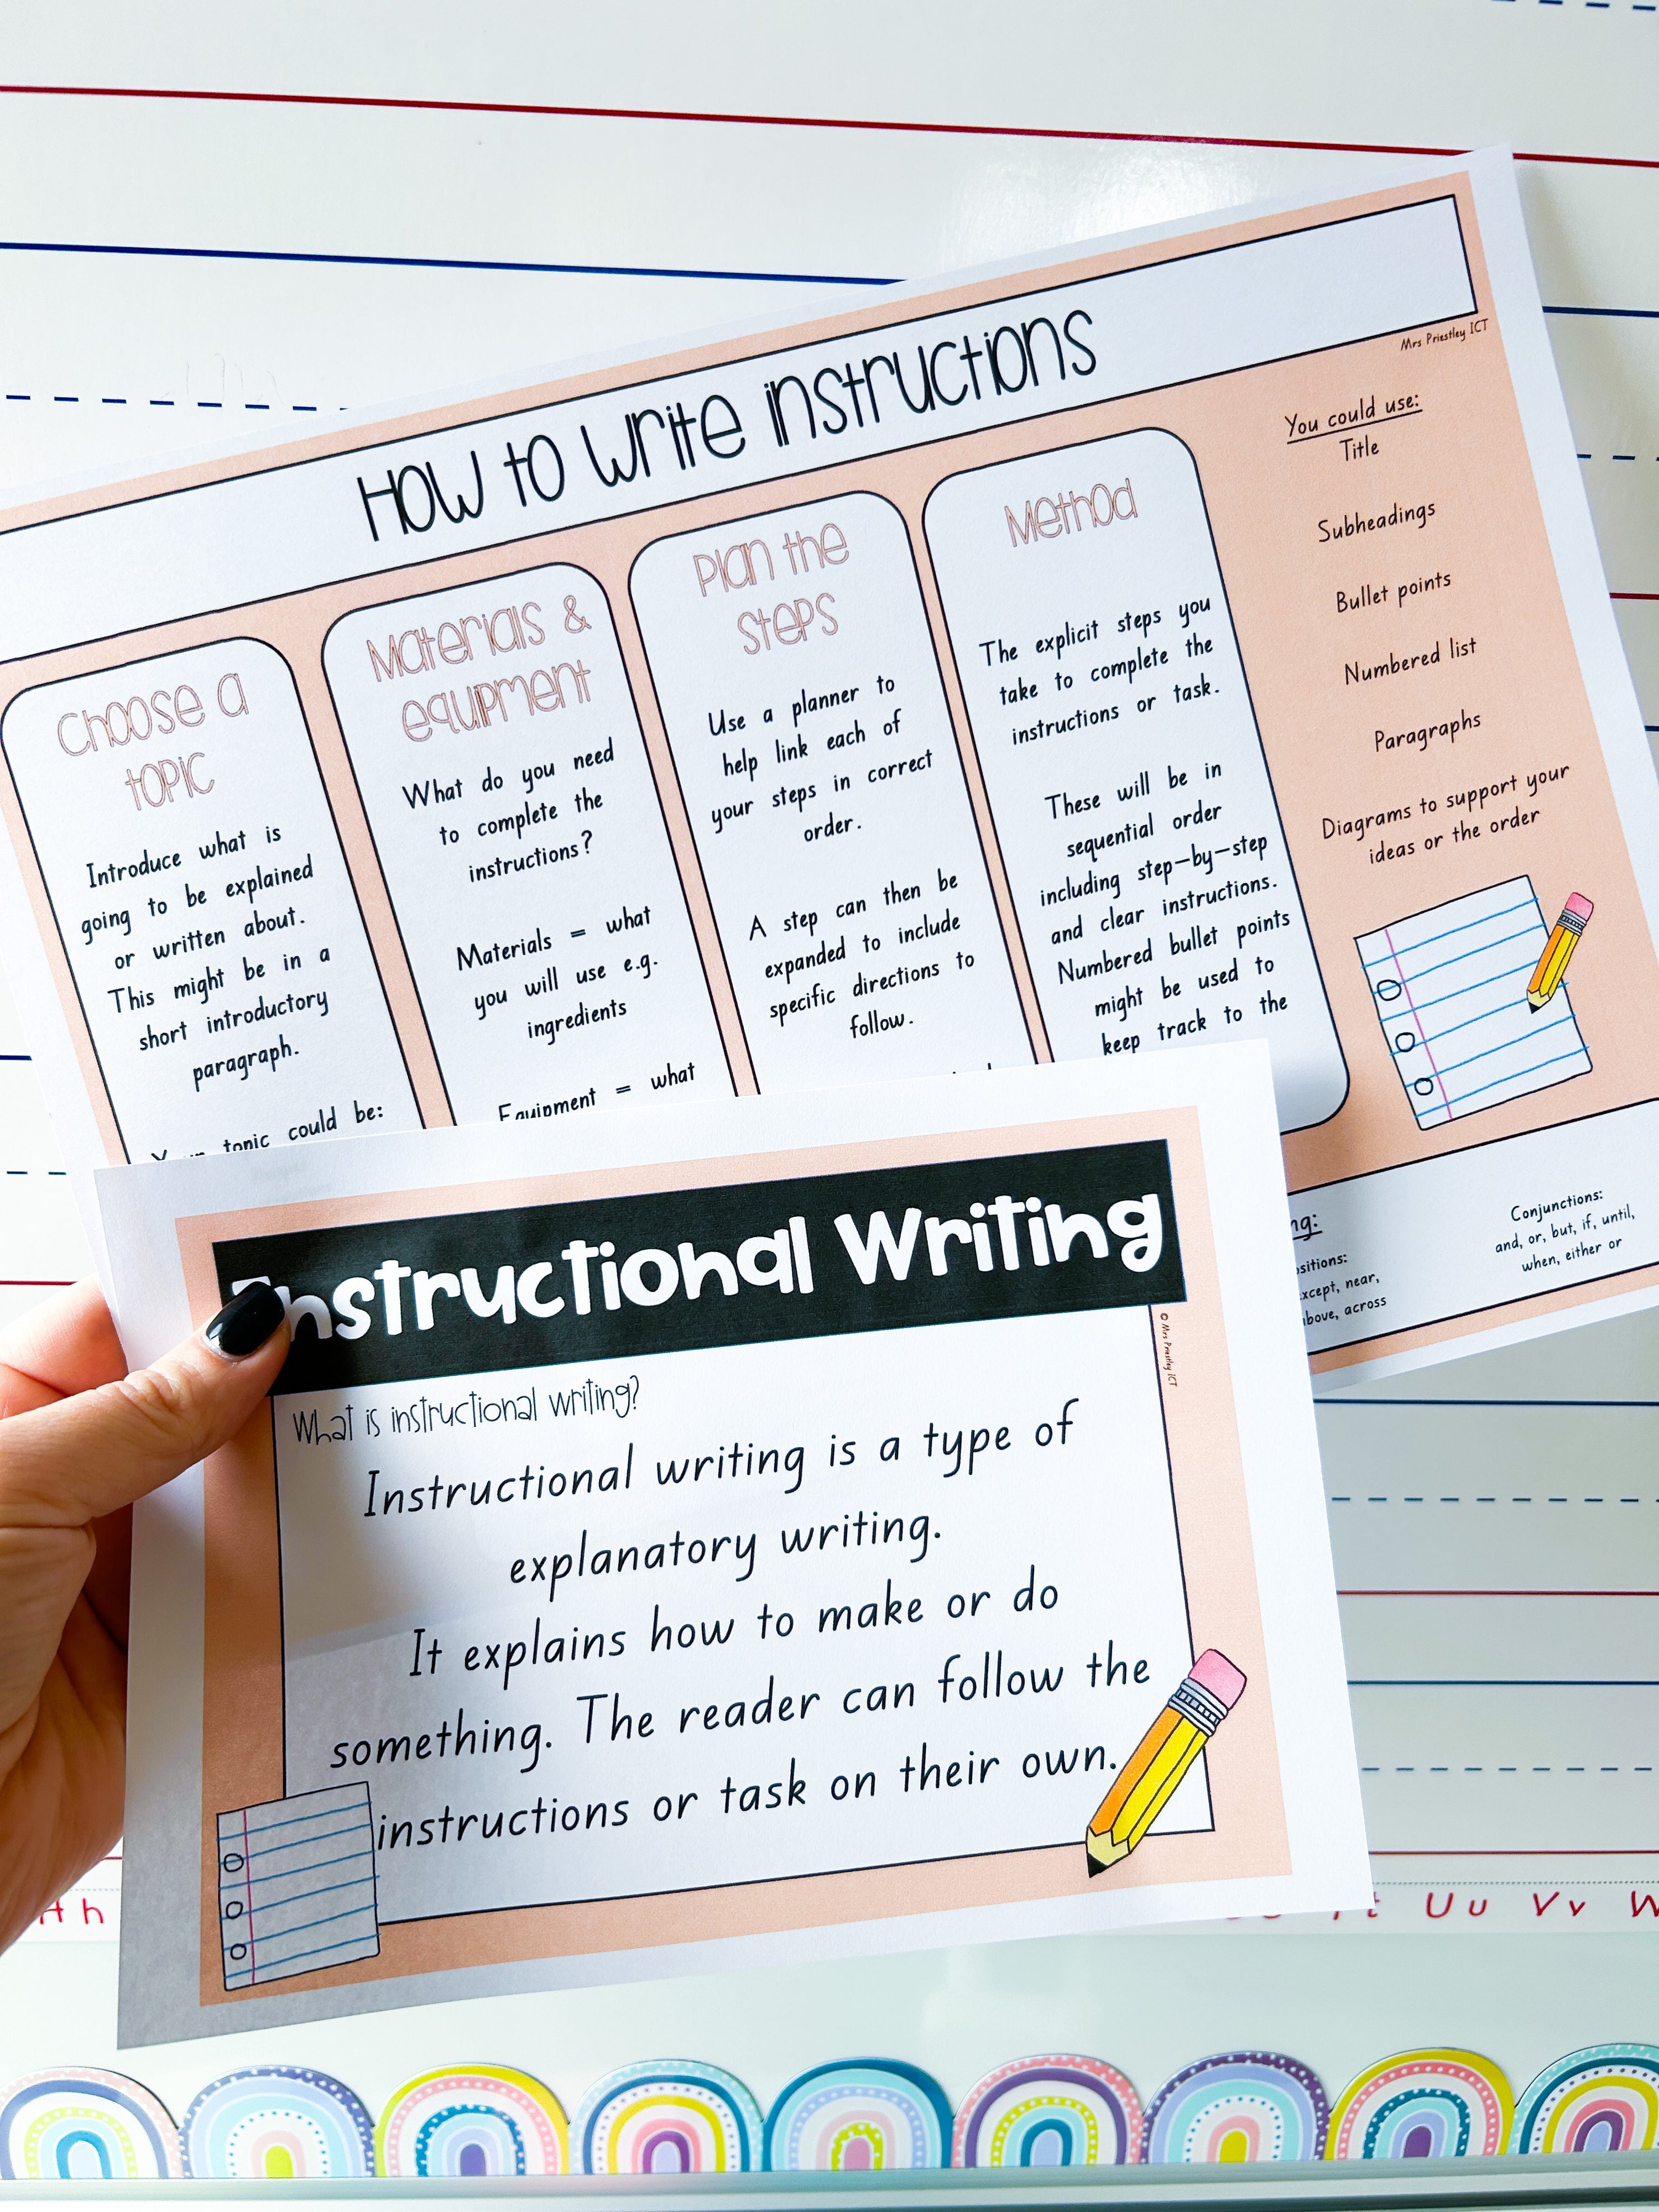 How to write instructions
Mrs Priestley ICT
Choose a
topic
Introduce what is
going to be explained
or written about.
This might be in a
short introductory
paragraph.
topic could be:
Materials &
equipment
What do you need
to complete the
instructions?
Materials = what
you will use e.g.
ingredients
Equipment = what
Plan the
steps
Use a planner to
help link each of
your steps in correct
order.
A step can then be
expanded to include
specific directions to
follow.
Method
The explicit steps you
take to complete the
instructions or task.
These will be in
sequential order
including step-by-step
and clear instructions.
Numbered bullet points
might be used to
keep track to the
You could use:
Title
Subheadings
Bullet points
Numbered list
Paragraphs
Diagrams to support your
ideas or the order
ng:
ositions:
xcept, near,
bove, across
Conjunctions:
and, or, but, if, until,
when, either or
Instructional Writing
© Mrs Priestley ICT
What is instructional writing?
Instructional writing is a type of
explanatory writing.
It explains how to make or do
something. The reader can follow the
instructions or task on their own.
H h
t Uu Vv W